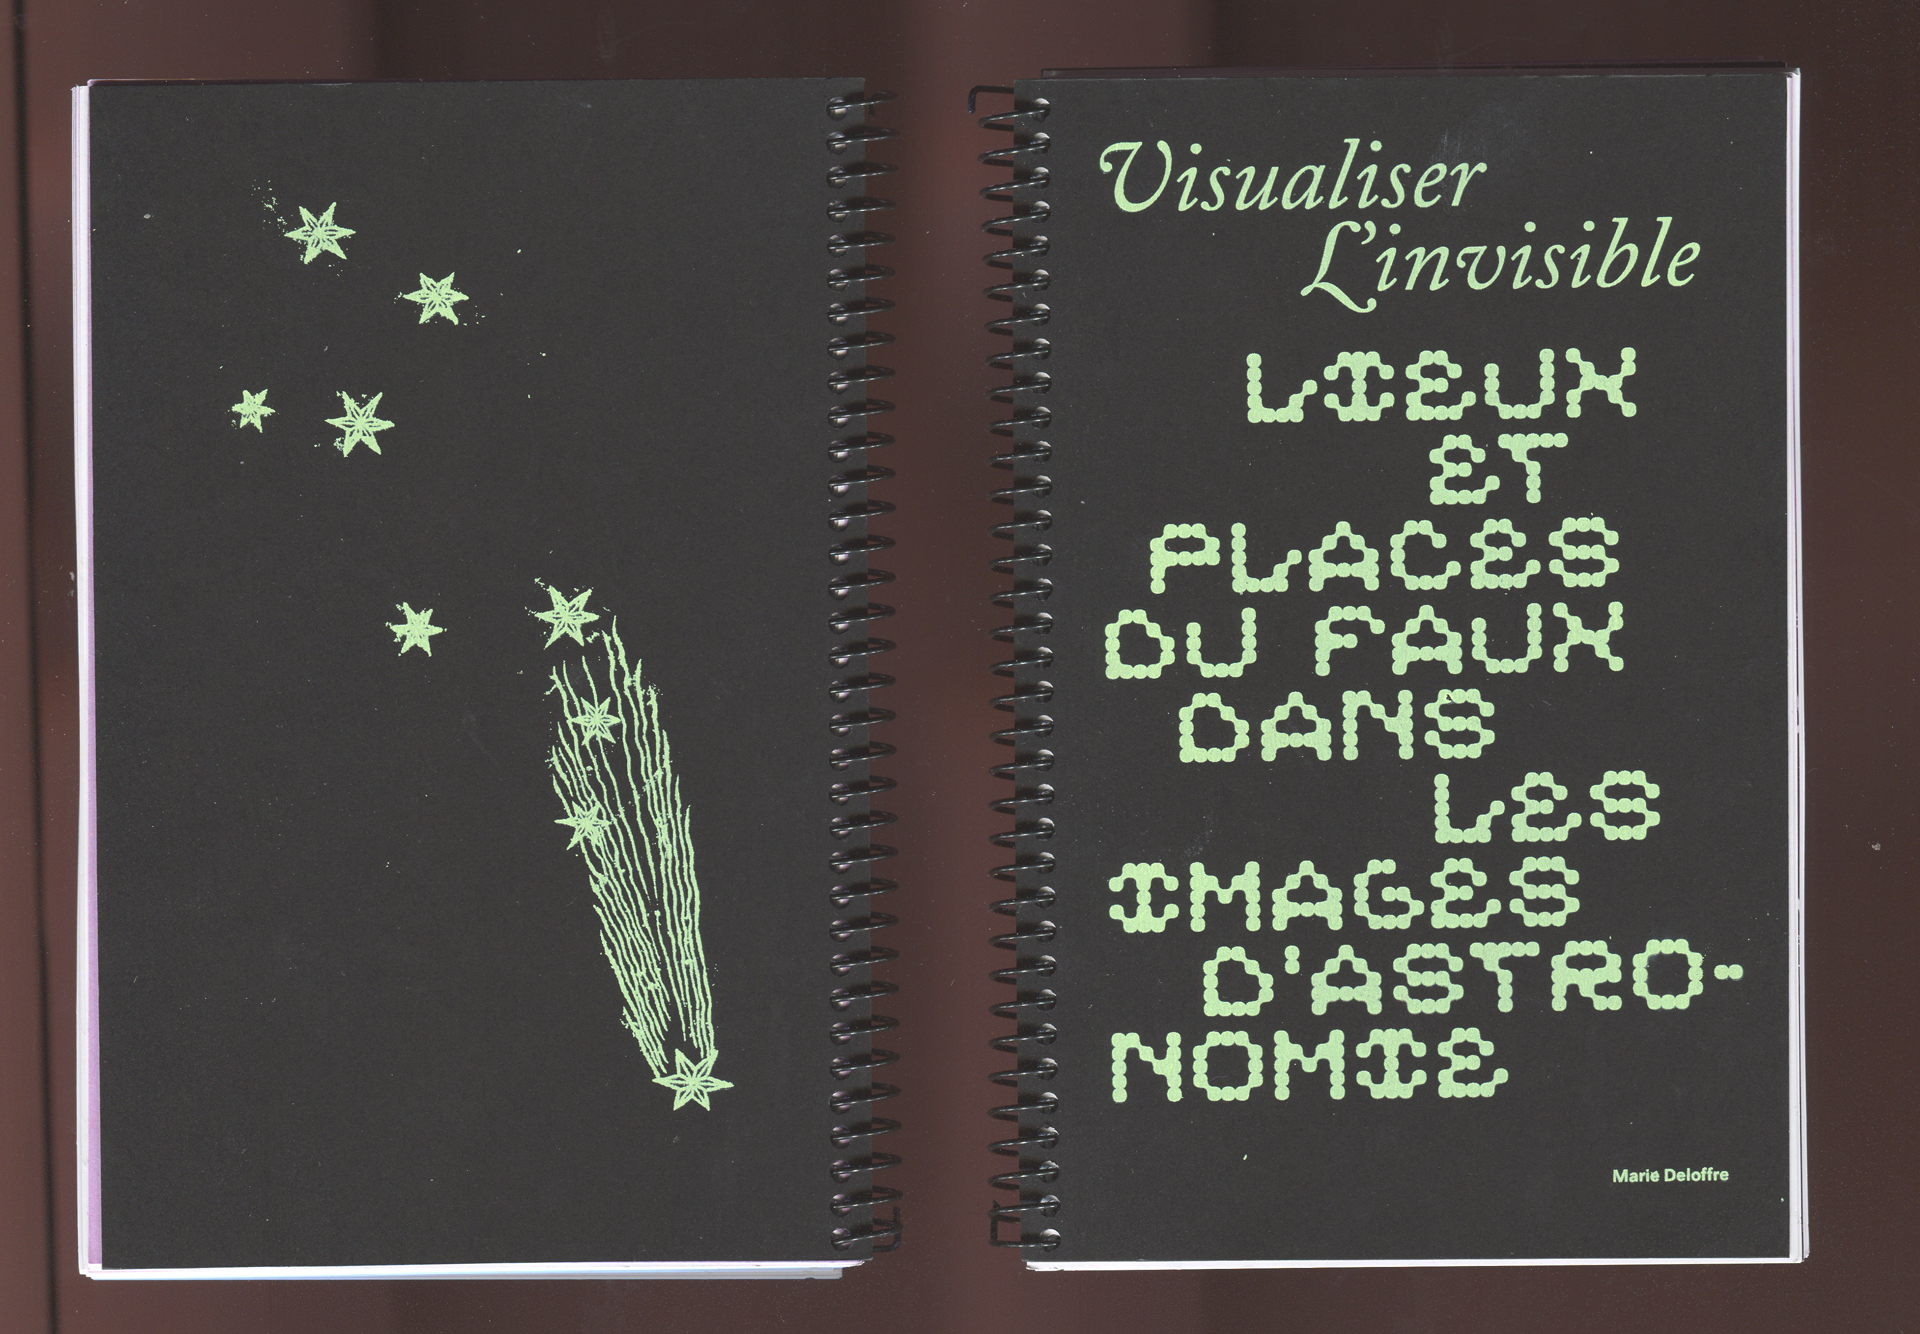 Visualiser
L'invisible
LIEUX
ET
PLACES
DU FAUX
DANS
LES
IMAGES
D'ASTRO-
NOMIE
Marie Deloffre